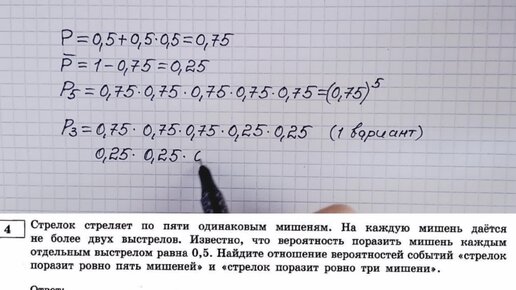 P = 0,5 + 0,5 · 0,5 = 0,75
P̅ = 1 - 0,75 = 0,25
P₅ = 0,75 · 0,75 · 0,75 · 0,75 · 0,75 = (0,75)⁵
P₃ = 0,75 · 0,75 · 0,75 · 0,25 · 0,25 (1 вариант)
0,25 · 0,25 ·
4 Стрелок стреляет по пяти одинаковым мишеням. На каждую мишень даётся
не более двух выстрелов. Известно, что вероятность поразить мишень каждым
отдельным выстрелом равна 0,5. Найдите отношение вероятностей событий «стрелок
поразит ровно пять мишеней» и «стрелок поразит ровно три мишени».